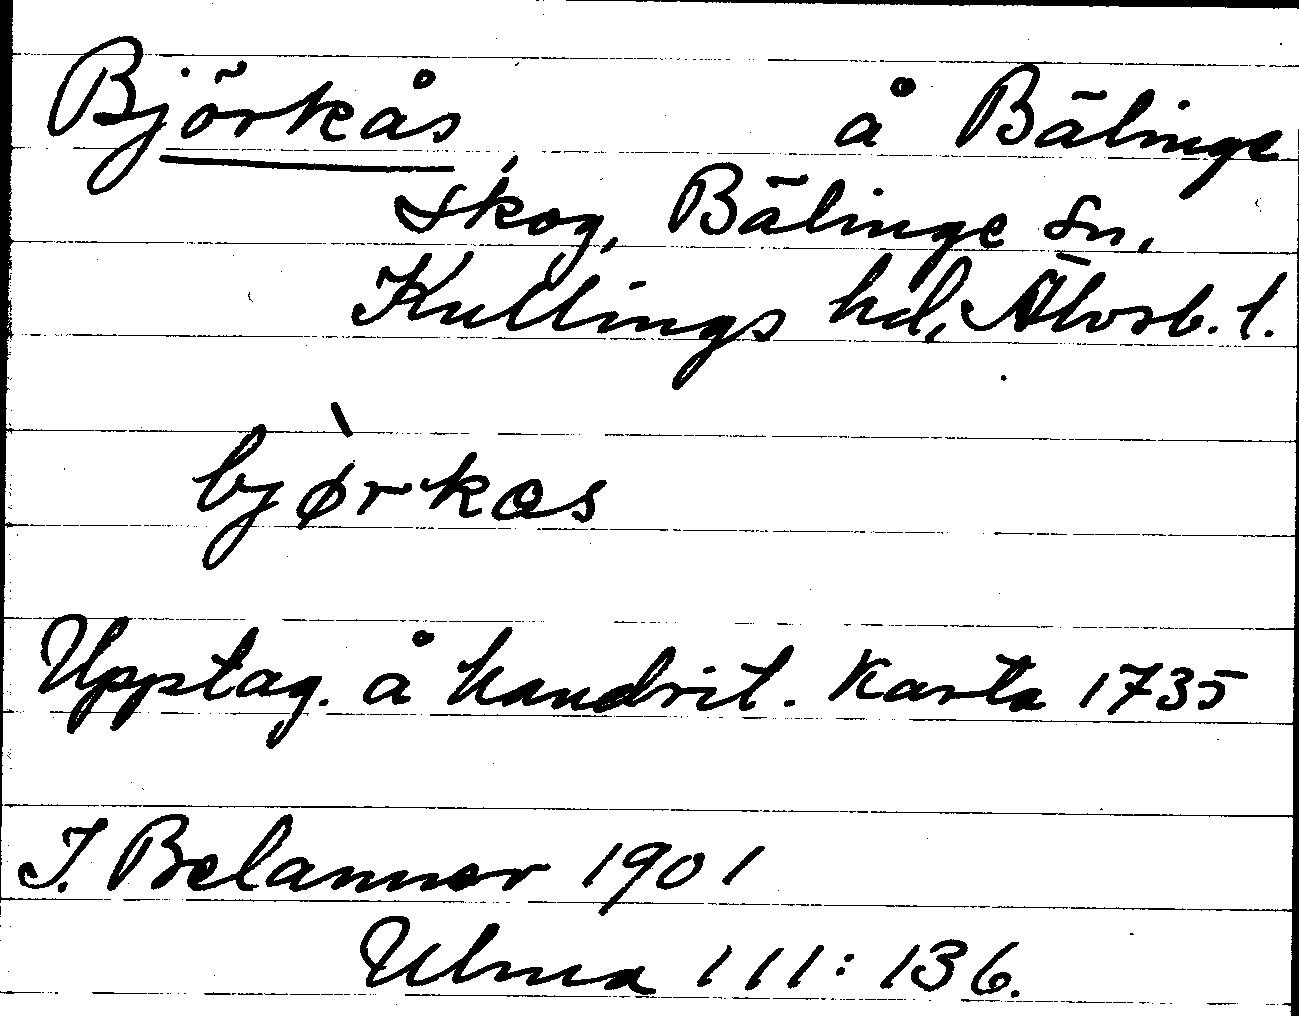 Björkås, å Bälinge
skog, Bälinge sn,
Kullings hd, Älvsb. l.
bjø̀rkas
Upptag. å handrit. karta 1735
I. Belanner 1901
Ulma 111:136.